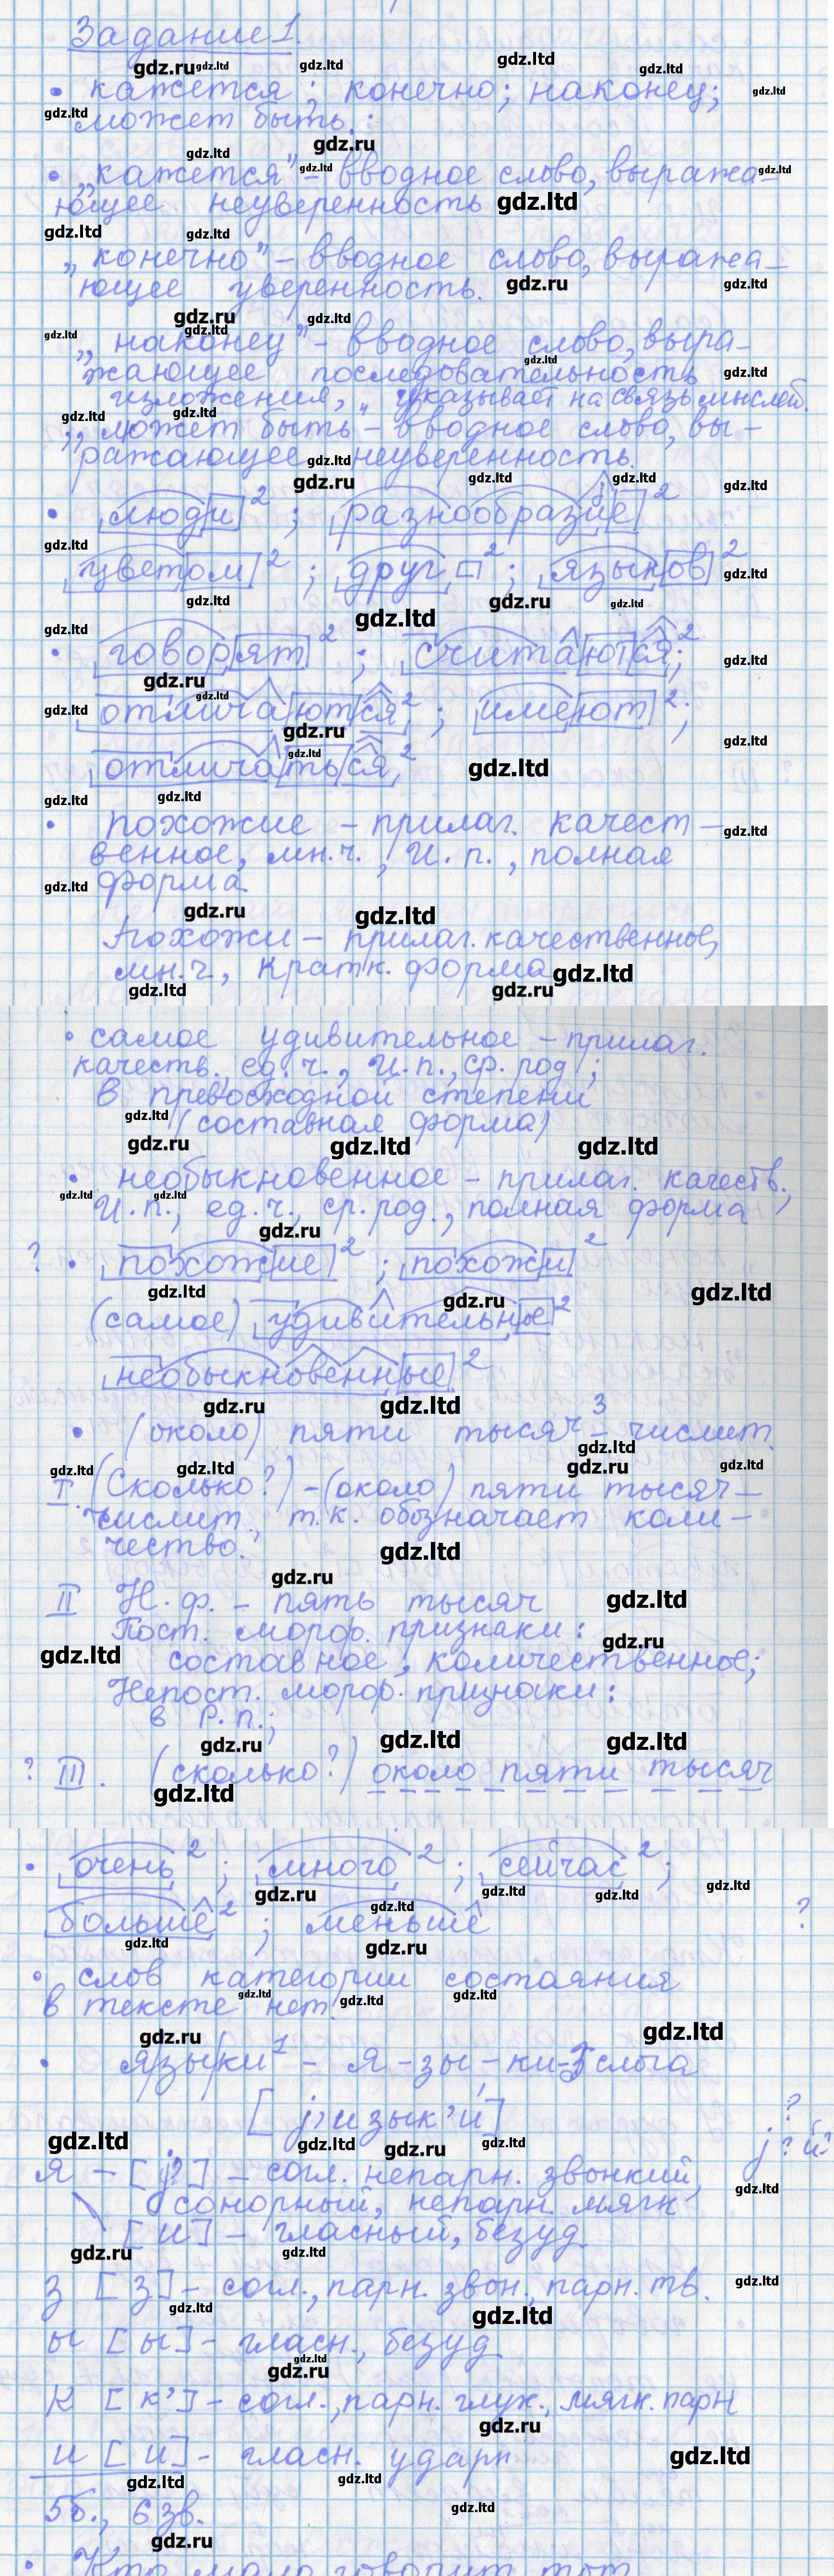 Задание 1.
• кажется ; конечно; наконец;
может быть.:
• „кажется" – вводное слово, выража-
ющее неуверенность
„конечно" – вводное слово, выража-
ющее уверенность.
„наконец" – вводное слово, выра-
жающее последовательность
изложения, указывает на связь мыслей.
„может быть" – вводное слово, вы-
ражающее неуверенность.
• люди ² ; разнообразие ²
цветом ² ; друг ² ; языков ²
• говорят ² ; считаются ²;
отличаются ² ; имеют ²;
отличаться ²
• похожие – прилаг. качест-
венное, мн.ч., И. п., полная
форма
похожи – прилаг. качественное,
мн.ч., кратк. форма
• самое удивительное – прилаг.
качеств. ед. ч., И.п., ср. род ;
в превосходной степени
(составная форма)
• необыкновенное – прилаг. качеств.,
И.п., ед.ч., ср. род., полная форма
? • похожие ² ; похожи ²
(самое) удивительные ²
необыкновенные ²
• (около) пяти тысяч ³ – числит.
I. (Сколько?) – (около) пяти тысяч –
числит., т.к. обозначает коли-
чество.
II Н. ф. – пять тысяч
Пост. морф. признаки:
составное, количественное;
Непост. морф. признаки:
в Р. п.;
? III. (сколько?) около пяти тысяч
• очень ² ; много ² ; сейчас ² ;
больше ² ; меньше ?
• слов категории состояния
в тексте нет.
• языки ¹ – я – зы – ки – 3 слога
[ j'изык'и ]
?
j ? й?
я – [ j' ] – согл. непарн. звонкий,
сонорный, непарн. мягк.
[ и ] – гласный, безуд.
з [ з ] – согл., парн. звон., парн. тв.
ы [ ы ] – гласн., безуд
к [ к' ] – согл., парн. глух., мягк. парн
и [ и ] – гласн. ударн
5б., 6 зв.
• Кто мало говорит, тот
gdz.ru
gdz.ltd